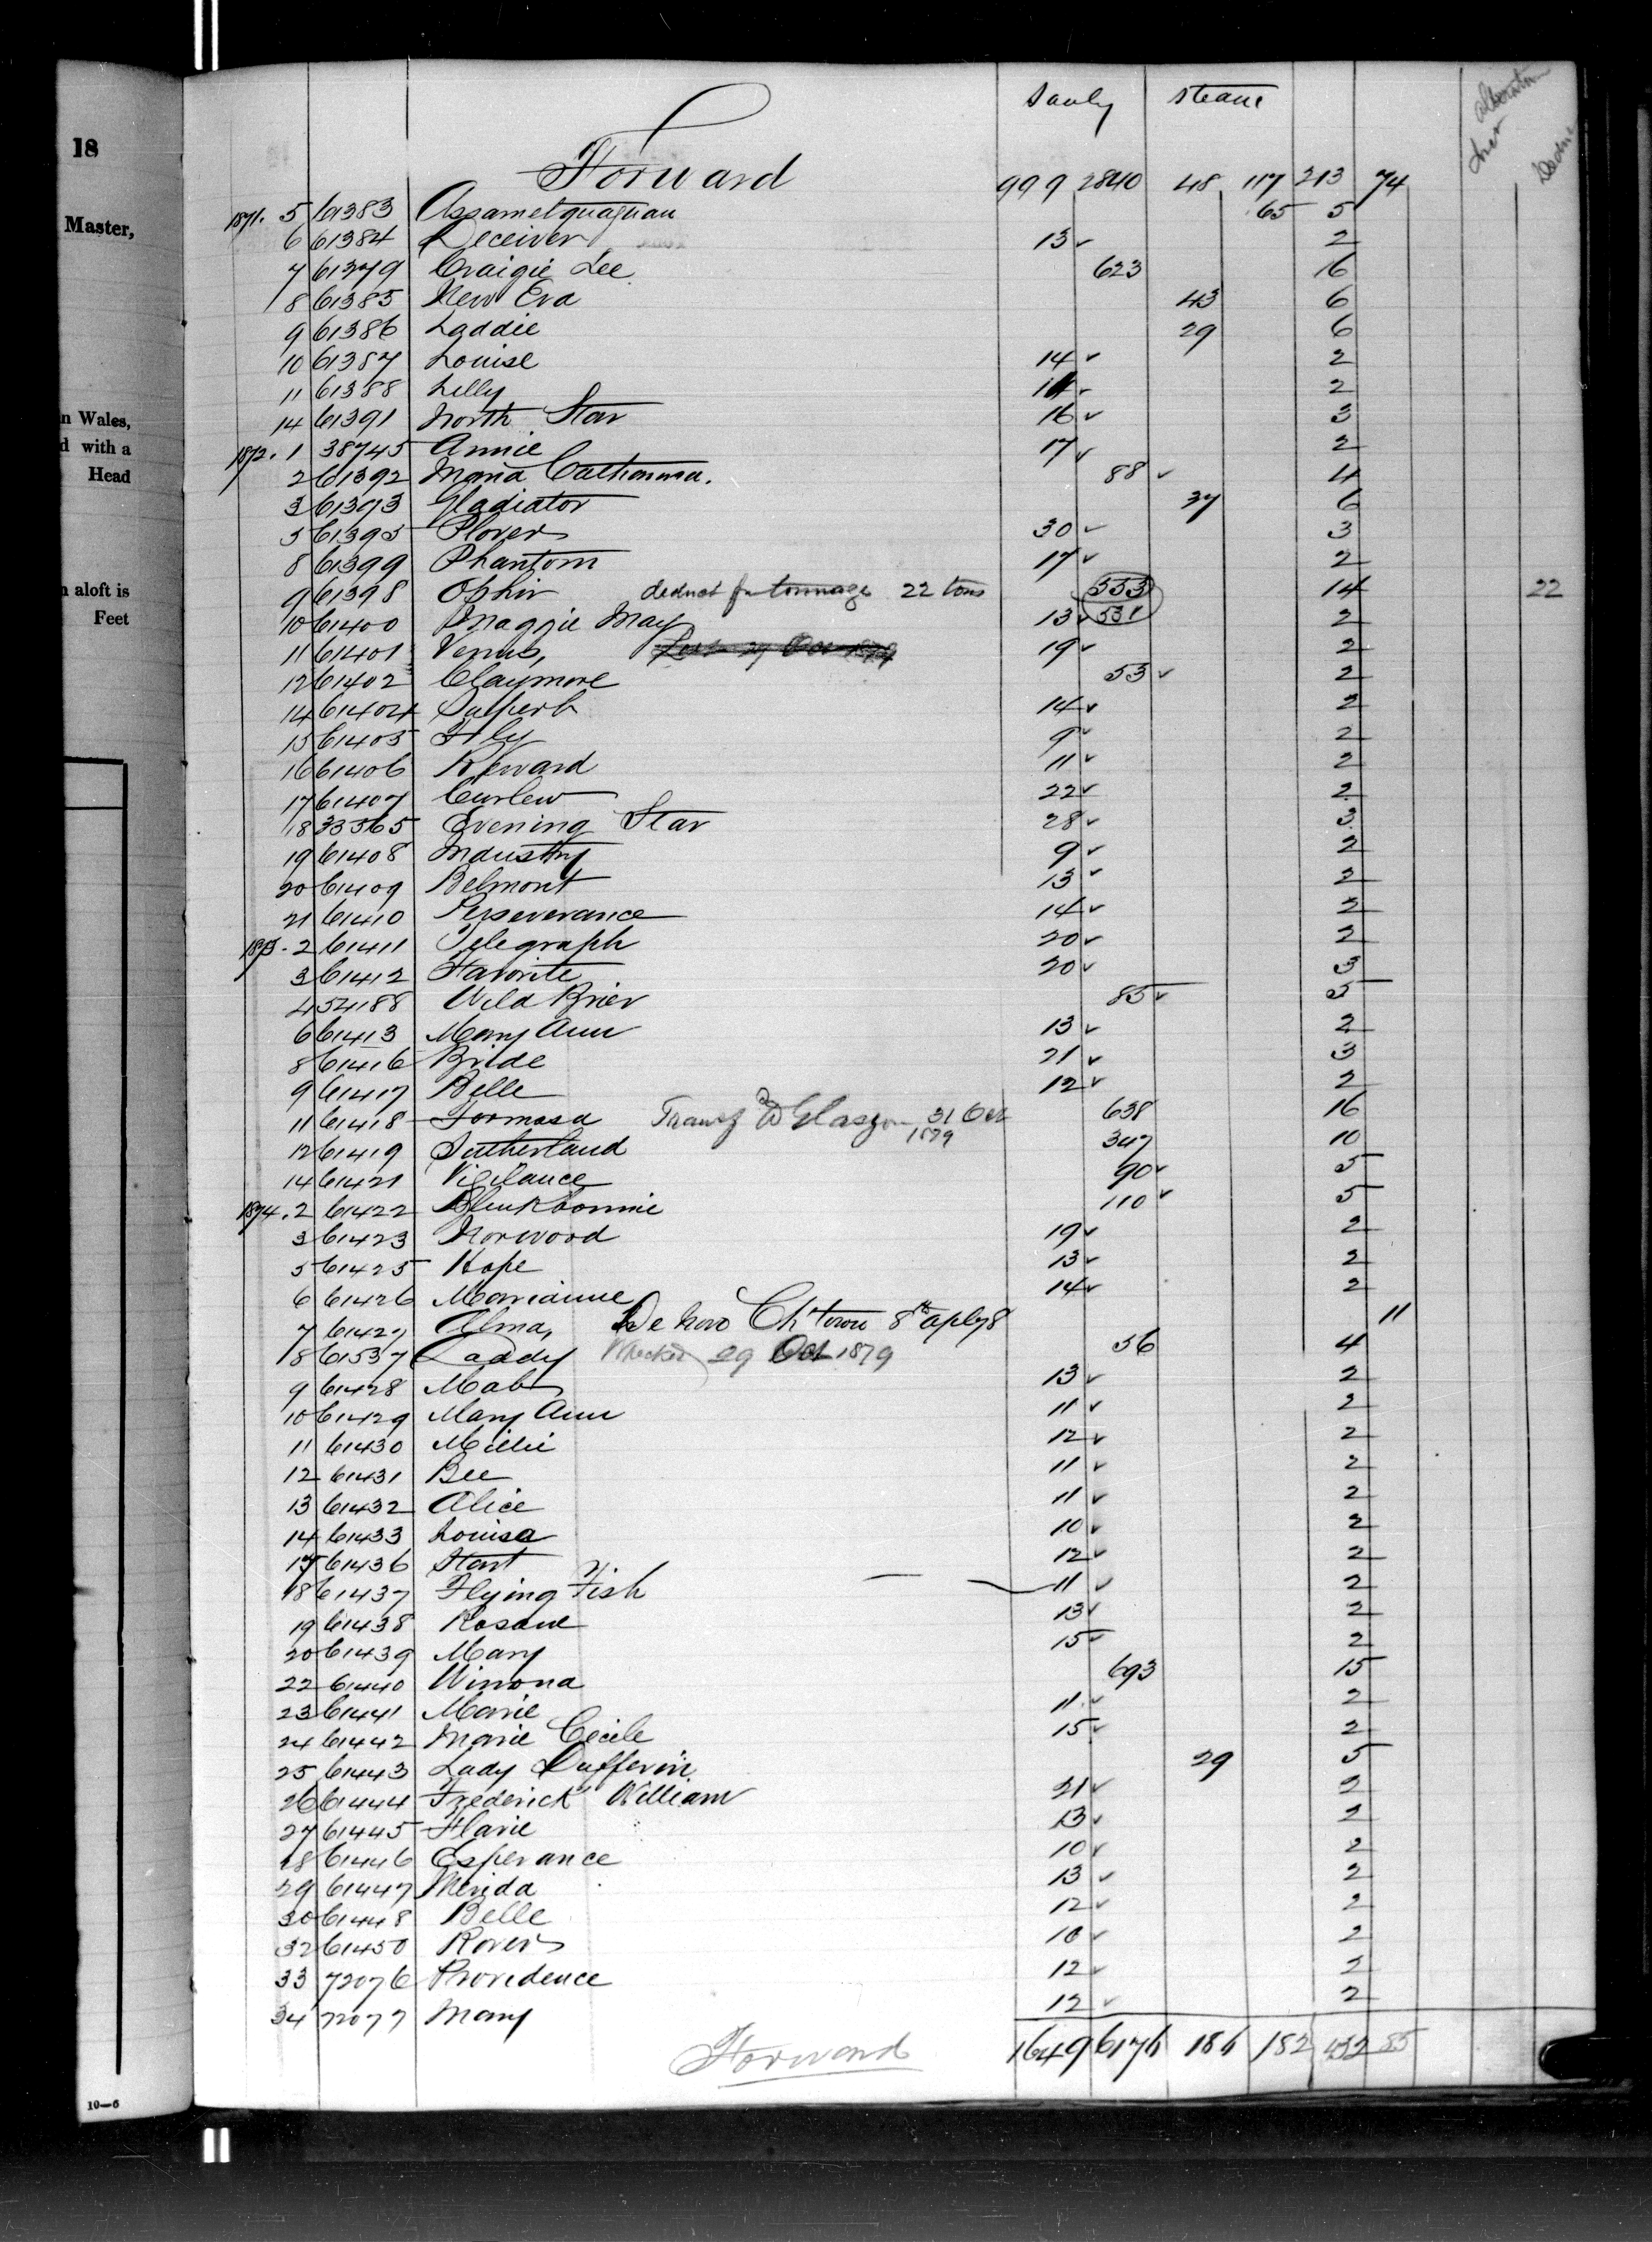 18
Master,
n Wales,
d with a
Head
n aloft is
Feet
10—6
Sauly steam
Forward 999 2840 48 117 213 74
1871. 5 61383 Assametquaghan 65 5
6 61384 Deceiver 13 ✓ 2
7 61379 Craigie Lee 623 16
8 61385 New Era 43 6
9 61386 Laddie 29 6
10 61387 Louise 14 ✓ 2
11 61388 Lilly 2
14 61391 North Star 16 ✓ 3
1872. 1 38745 Annie 17 ✓ 2
2 61392 Maria Catherina. 88 ✓ 4
3 61393 Gladiator 37 6
5 61395 Plover 30 ✓ 3
8 61399 Phantom 17 ✓ 2
9 61398 Ophir deduct for tonnage 22 tons 553 14 22
10 61400 Maggie May 13 ✓ 531 2
11 61401 Venus, Lost 29 Oct 1879 19 ✓ 2
12 61402 Claymore 53 ✓ 2
14 61404 Superb 14 ✓ 2
15 61405 Fly 9 ✓ 2
16 61406 Reward 11 ✓ 2
17 61407 Curlew 22 ✓ 2
18 33565 Evening Star 28 ✓ 3
19 61408 Industry 9 ✓ 2
20 61409 Belmont 13 ✓ 2
21 61410 Perseverance 14 ✓ 2
1873. 2 61411 Telegraph 20 ✓ 2
3 61412 Favorite 20 ✓ 3
4 54188 Wild Brier 85 ✓ 5
6 61413 Mary Ann 13 ✓ 2
8 61416 Bride 21 ✓ 3
9 61417 Belle 12 ✓ 2
11 61418 Formosa Transf'd Glasgow 31 Oct 1879 638 16
12 61419 Sutherland 347 10
14 61421 Vigilance 90 ✓ 5
1874. 2 61422 Blinkbonnie 110 ✓ 5
3 61423 Norwood 19 ✓ 2
5 61425 Hope 13 ✓ 2
6 61426 Marianne 14 ✓ 2
7 61427 Alma, De Novo Ch'town 8th aply8 11
8 61537 Daddy Wrecked 29 Oct 1879 56 4
9 61428 Mab 13 ✓ 2
10 61429 Mary Ann 11 ✓ 2
11 61430 Millie 12 ✓ 2
12 61431 Bee 11 ✓ 2
13 61432 Alice 11 ✓ 2
14 61433 Louisa 10 ✓ 2
17 61436 Start 12 ✓ 2
18 61437 Flying Fish 11 ✓ 2
19 61438 Rosanne 13 ✓ 2
20 61439 Mary 15 ✓ 2
22 61440 Winona 693 15
23 61441 Marie 11 ✓ 2
24 61442 Marie Cecile 15 ✓ 2
25 61443 Lady Dufferin 29 5
26 61444 Frederick William 21 ✓ 2
27 61445 Flavie 13 ✓ 2
28 61446 Esperance 10 ✓ 2
29 61447 Merida 13 ✓ 2
30 61448 Belle 12 ✓ 2
32 61450 Rover 10 ✓ 2
33 72076 Providence 12 ✓ 2
34 72077 Mary 12 ✓ 2
Forward 1649 6176 186 182 432 85